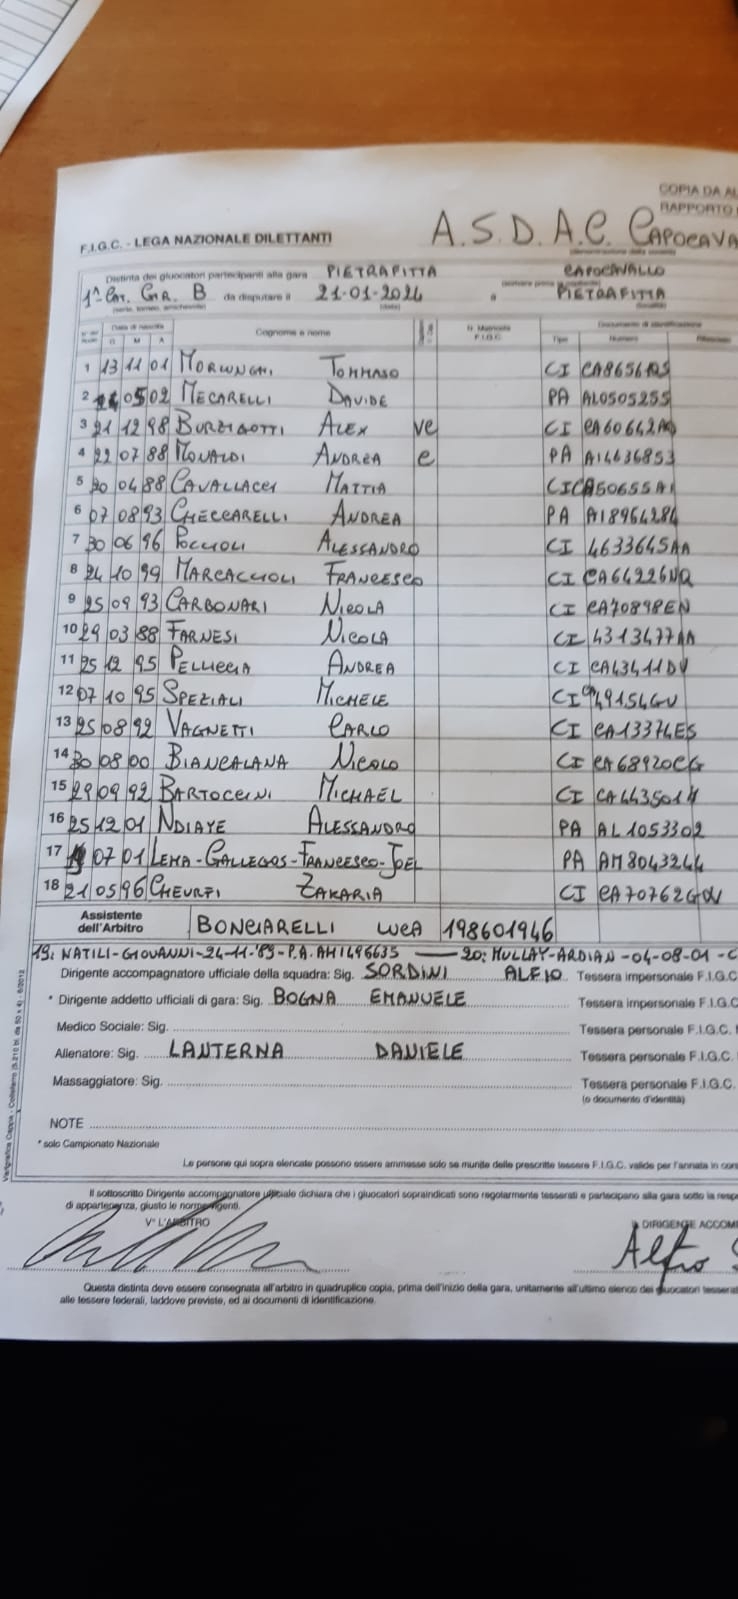 COPIA DA AL
RAPPORTO
F.I.G.C. - LEGA NAZIONALE DILETTANTI A.S.D. A.C. CAPOCAVA
Distinta dei giuocatori partecipanti alla gara PIETRAFITTA CAPOCAVALLO
1ª CAT. GIR. B da disputare il 21-01-2024 a PIETRAFITTA
Data di nascita Cognome e nome N. Matricola F.I.G.C. Documento di identificazione
G M A Tipo Numero Rilasciato
1 13 11 01 TOMMASO CI
2 05 02 MECARELLI DAVIDE PA AL0505255
3 21 12 98 ALEX VC CI
4 22 07 88 MONALDI ANDREA C PA
5 20 04 88 CAVALLACCI MATTIA CI CA50655AI
6 07 08 93 CHECCARELLI ANDREA PA AI8964284
7 30 06 96 POCCIOLI ALESSANDRO CI 4633645AA
8 24 10 99 MARCACCIOLI FRANCESCO CI
9 25 09 93 CARBONARI NICOLA CI CA70898EN
10 29 03 88 FARNESI NICOLA CI 4313477AA
11 25 12 95 PELUCCA ANDREA CI CA43411DV
12 07 10 95 SPEZIALI MICHELE CI CA49154GV
13 25 08 92 VAGNETTI CARLO CI CA13374ES
14 30 08 00 BIANCALANA NICOLO CI CA68920CG
15 29 09 92 BARTOCCINI MICHAEL CI
16 25 12 01 NDIAYE ALESSANDRO PA AL1053302
17 07 01 LEMA-GALLEGOS-FRANCESCO-JOEL PA AM8043244
18 21 05 96 ZAKARIA CI
Assistente
dell'Arbitro BONCIARELLI LUCA 198601946
19: NATILI-GIOVANNI-24-11-89-P.A. — 20: MULLAY-ARDIAN-04-08-01-C
Dirigente accompagnatore ufficiale della squadra: Sig. SORDINI ALFIO Tessera impersonale F.I.G.C
* Dirigente addetto ufficiali di gara: Sig. BOGNA EMANUELE Tessera impersonale F.I.G.C
Medico Sociale: Sig. Tessera personale F.I.G.C.
Allenatore: Sig. LANTERNA DANIELE Tessera personale F.I.G.C.
Massaggiatore: Sig. Tessera personale F.I.G.C.
(o documento d'identità)
NOTE
* solo Campionato Nazionale
Le persone qui sopra elencate possono essere ammesse solo se munite delle prescritte tessere F.I.G.C. valide per l'annata in con
Il sottoscritto Dirigente accompagnatore ufficiale dichiara che i giuocatori sopraindicati sono regolarmente tesserati e partecipano alla gara sotto la resp
di appartenenza, giusto le norme vigenti.
V° L'ARBITRO IL DIRIGENTE ACCOM
Alfio S
Questa distinta deve essere consegnata all'arbitro in quadruplice copia, prima dell'inizio della gara, unitamente all'ultimo elenco dei giuocatori tesserati
alle tessere federali, laddove previste, ed ai documenti di identificazione.